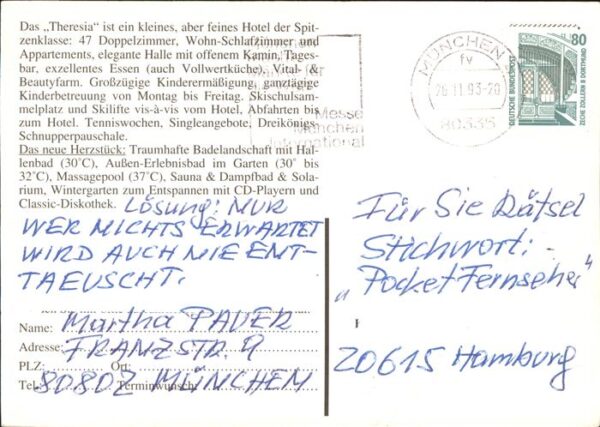 Das „Theresia" ist ein kleines, aber feines Hotel der Spit-
zenklasse: 47 Doppelzimmer, Wohn-Schlafzimmer und
Appartements, elegante Halle mit offenem Kamin, Tages-
bar, exzellentes Essen (auch Vollwertküche), Vital- &
Beautyfarm. Großzügige Kinderermäßigung, ganztägige
Kinderbetreuung von Montag bis Freitag. Skischulsam-
melplatz und Skilifte vis-à-vis vom Hotel, Abfahrten bis
zum Hotel. Tenniswochen, Singleangebote, Dreikönigs-
Schnupperpauschale.
Das neue Herzstück: Traumhafte Badelandschaft mit Hal-
lenbad (30°C), Außen-Erlebnisbad im Garten (30° bis
32°C), Massagepool (37°C), Sauna & Dampfbad & Sola-
rium, Wintergarten zum Entspannen mit CD-Playern und
Classic-Diskothek.
Lösung: NUR
WER NICHTS ERWARTET
WIRD AUCH NIE ENT-
TAEUSCHT.
Name: Martha PAUER
Adresse: FRANZSTR. 9
PLZ: Ort:
80802 MÜNCHEN
Tel.: Terminwunsch:
Messe
München
international
MÜNCHEN
fv
26.11.93-20
80335
80
DEUTSCHE BUNDESPOST
ZECHE ZOLLERN II DORTMUND
Für Sie Rätsel
Stichwort:
„Pocket Fernseher"
20615 Hamburg